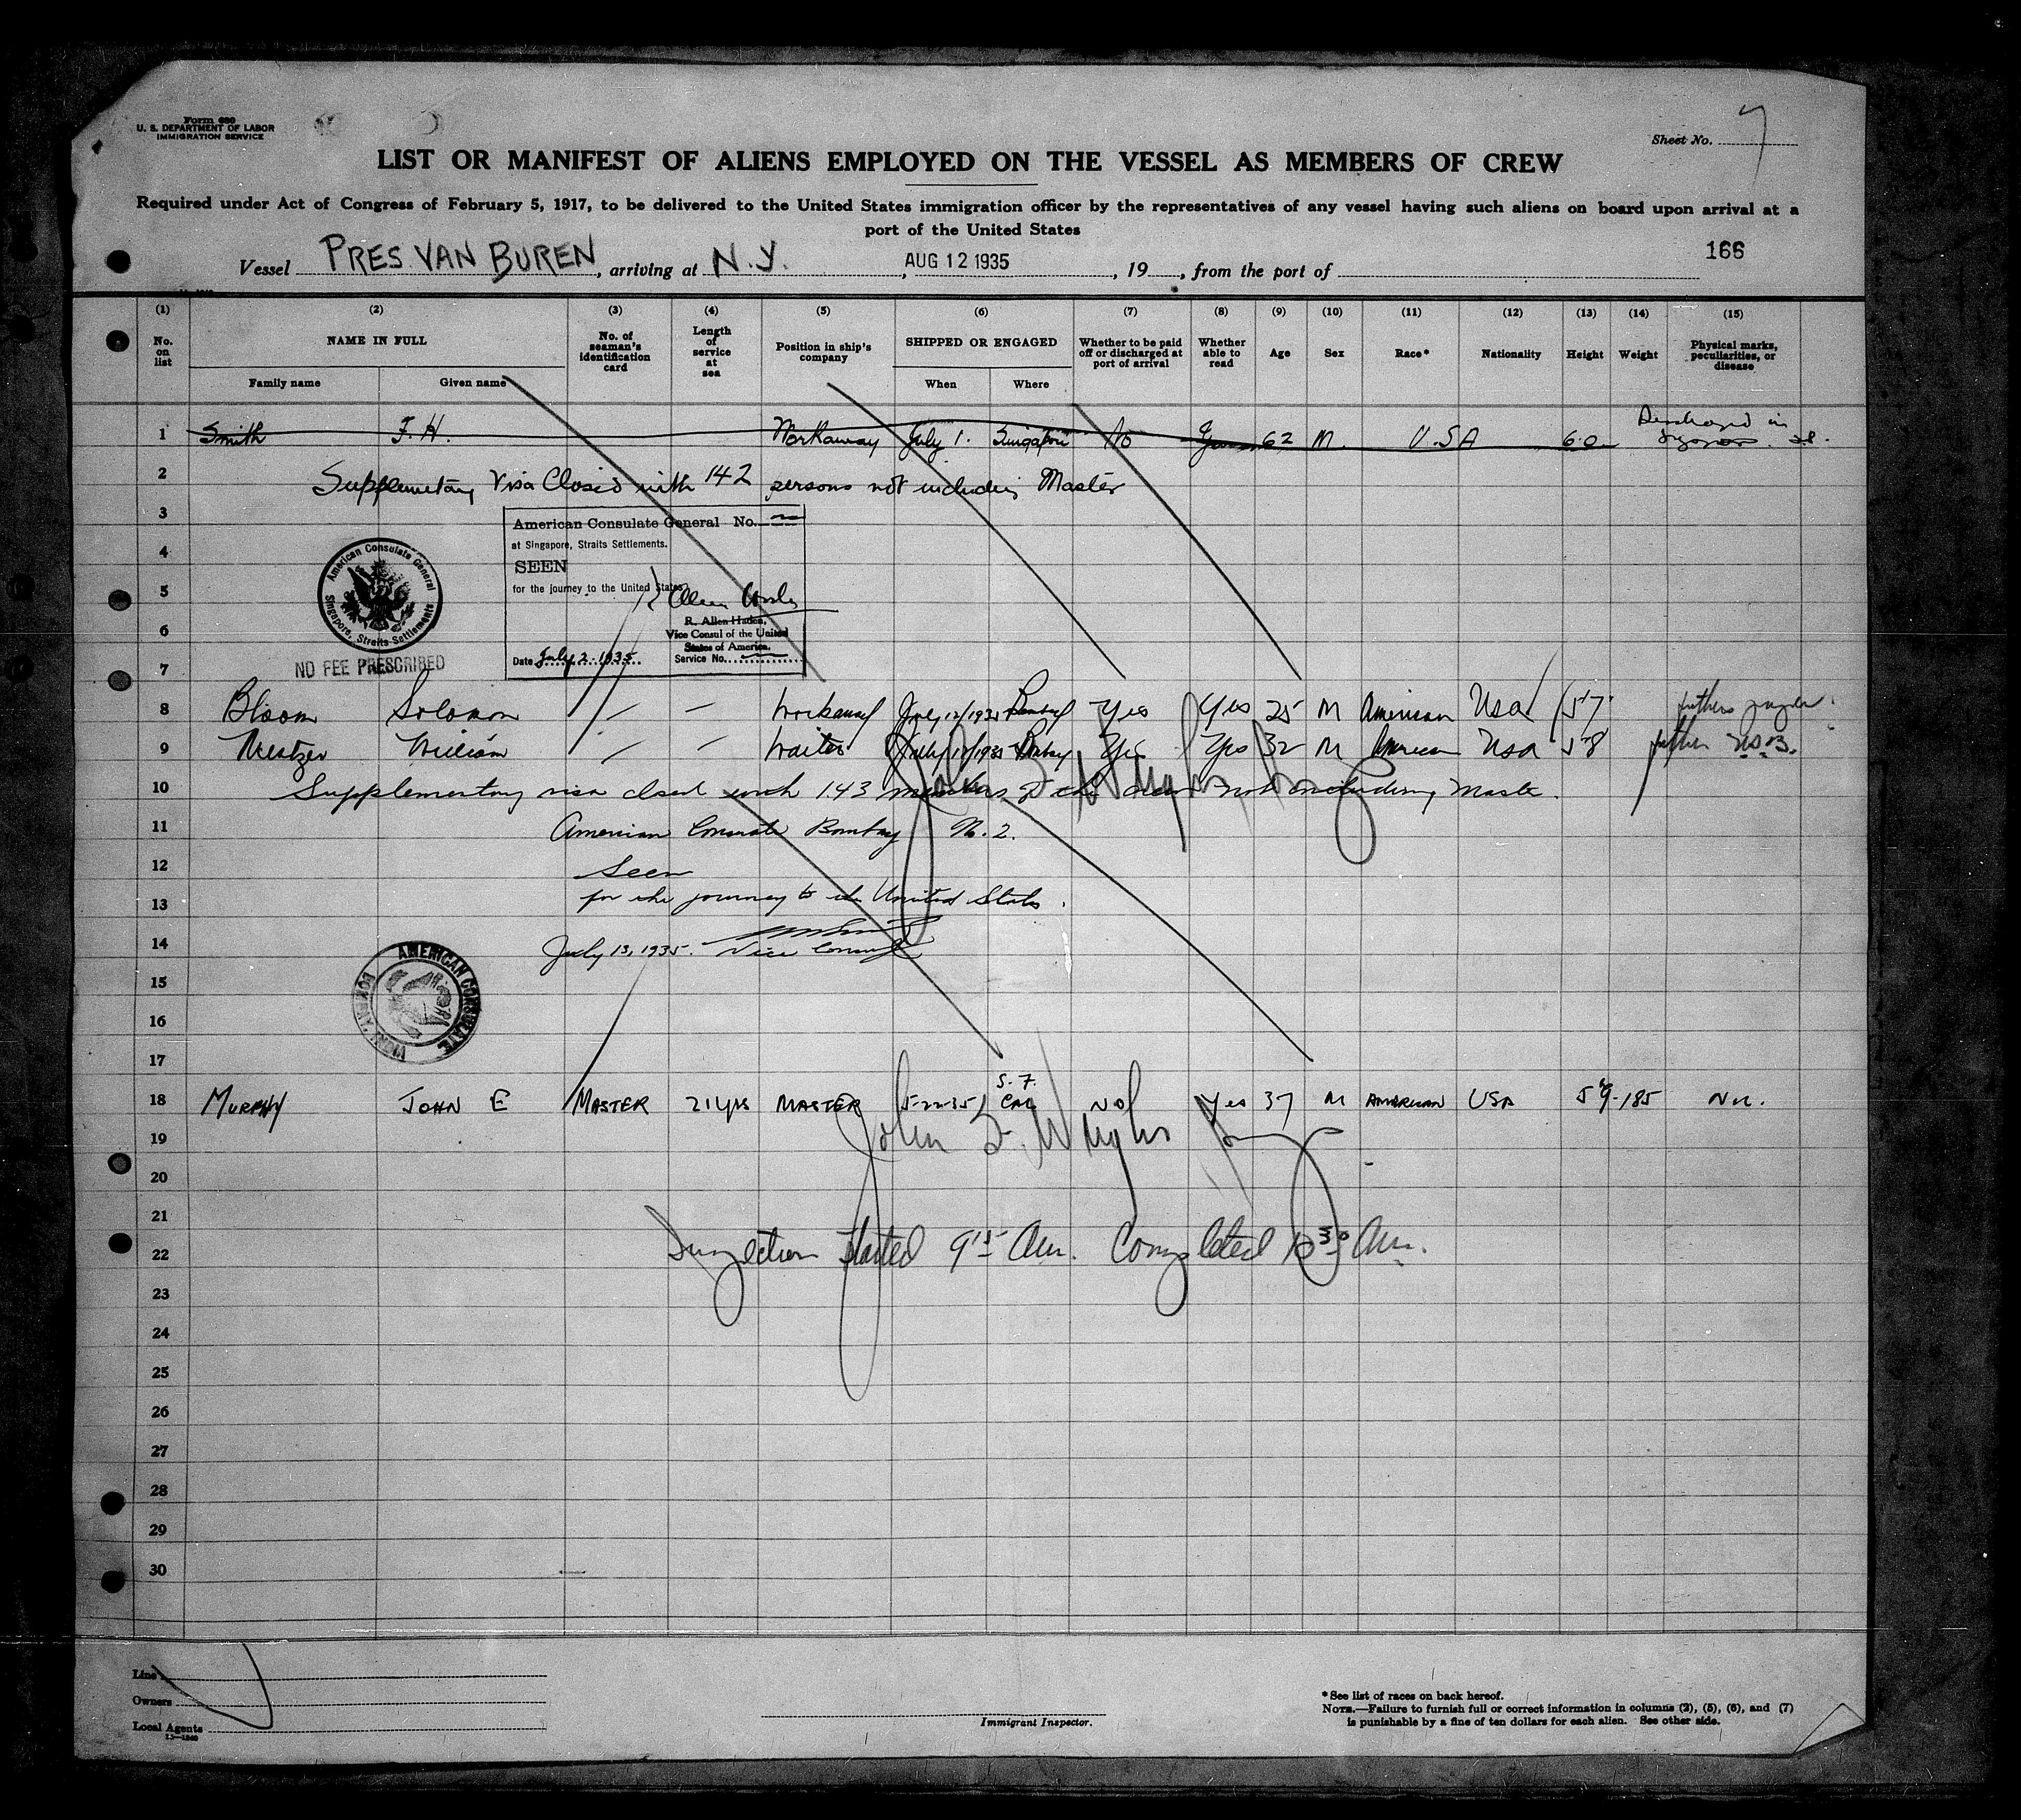 Form 680
U. S. DEPARTMENT OF LABOR
IMMIGRATION SERVICE
Sheet No. 7
LIST OR MANIFEST OF ALIENS EMPLOYED ON THE VESSEL AS MEMBERS OF CREW
Required under Act of Congress of February 5, 1917, to be delivered to the United States immigration officer by the representatives of any vessel having such aliens on board upon arrival at a
port of the United States
166
Vessel PRES VAN BUREN, arriving at N.Y., AUG 12 1935, 19, from the port of
(1) (2) (3) (4) (5) (6) (7) (8) (9) (10) (11) (12) (13) (14) (15)
No. on list NAME IN FULL No. of seaman's identification card Length of service at sea Position in ship's company SHIPPED OR ENGAGED Whether to be paid off or discharged at port of arrival Whether able to read Age Sex Race* Nationality Height Weight Physical marks, peculiarities, or disease
Family name Given name When Where
1 Smith F. H. Workaway July 1. Singapore No Yes 62 M. U.SA 6.0 Discharged in
2 Supplementary Visa Closed with 142 persons not including Master
3
American Consulate General No.
at Singapore, Straits Settlements.
4
SEEN
American Consulate General
Singapore, Straits Settlements
5
for the journey to the United States
R. Allen Haden,
6
Vice Consul of the United
States of America.
7
NO FEE PRESCRIBED
Date July 2. 1935. Service No.
8 Bloom Solomon — — Workaway July 12/1935 Bombay Yes Yes 25 M American Usa 5'7"
9 William — — Waiter July 12/1935 Bombay Yes Yes 32 M American Usa 5'8
10 Supplementary visa closed with 143 members of the crew not including Master.
11 American Consulate Bombay No. 2.
12 Seen
13 for the journey to the United States.
14 July 13, 1935. Vice Consul
AMERICAN CONSULATE
BOMBAY, INDIA
15
16
17
18 MURPHY JOHN E MASTER 21 yrs MASTER 5-22-35 S.F. CAL NO Yes 37 M AMERICAN USA 5'9-185 NIL.
19
20
21
22 Inspection started 9 15 Am. Completed 10 30 Am.
23
24
25
26
27
28
29
30
Line
Owners
Local Agents
Immigrant Inspector.
* See list of races on back hereof.
NOTE.—Failure to furnish full or correct information in columns (2), (5), (6), and (7)
is punishable by a fine of ten dollars for each alien. See other side.